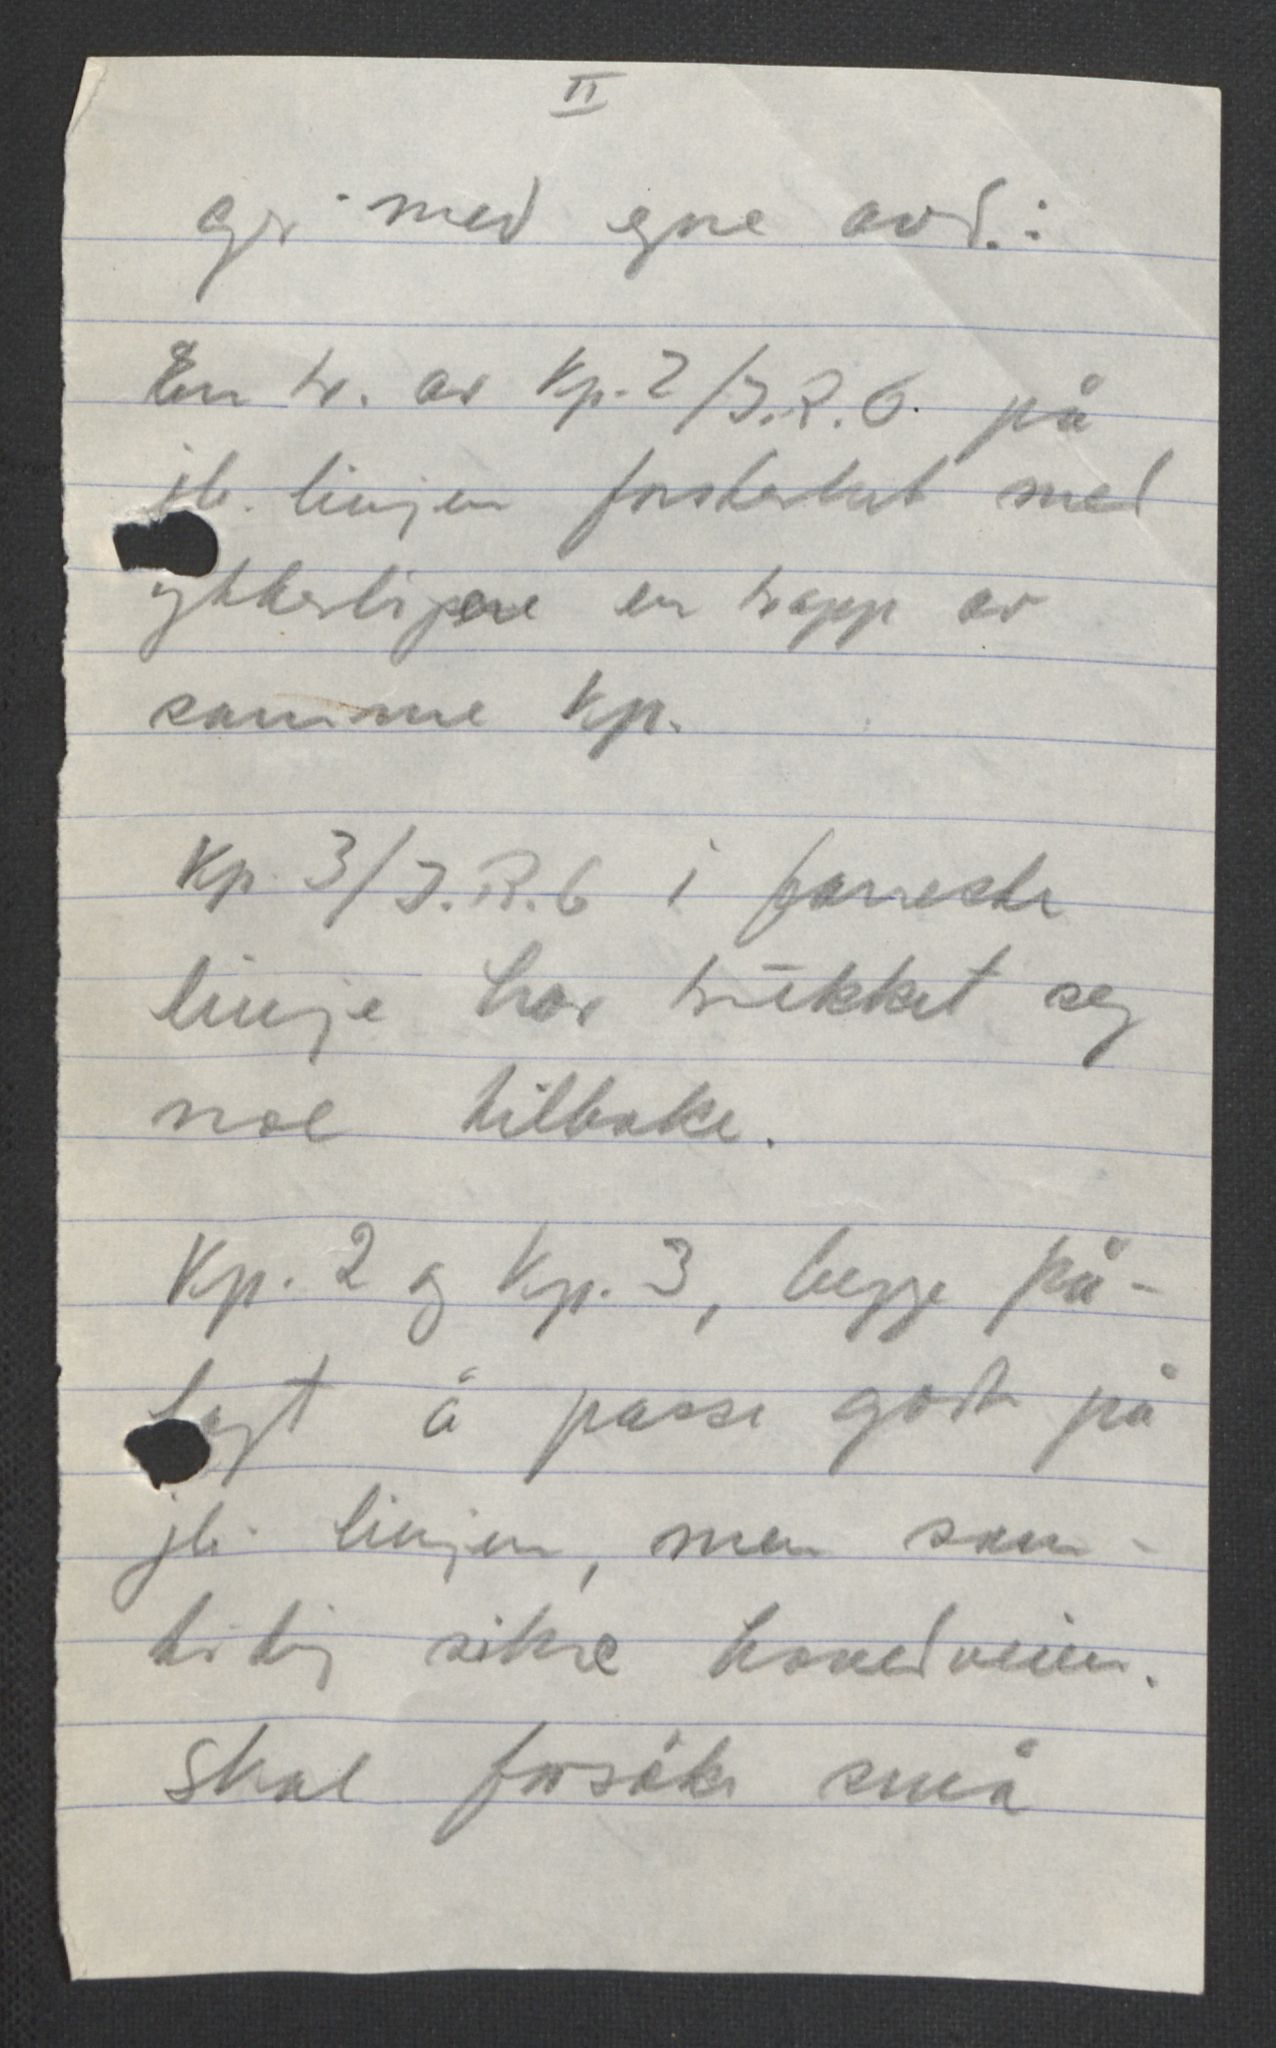 II
gr. med egne avd.:
En tr. av Kp. 2/J.R.6. på
jb. linjen forsterket med
ytterligere en tropp av
samme Kp.
Kp. 3/J.R.6 i forreste
linje har trukket seg
noe tilbake.
Kp. 2 og Kp. 3, begge på-
lagt å passe godt på
jb. linjen, men sam-
tidig sikre hovedveien.
Skal forsøke små